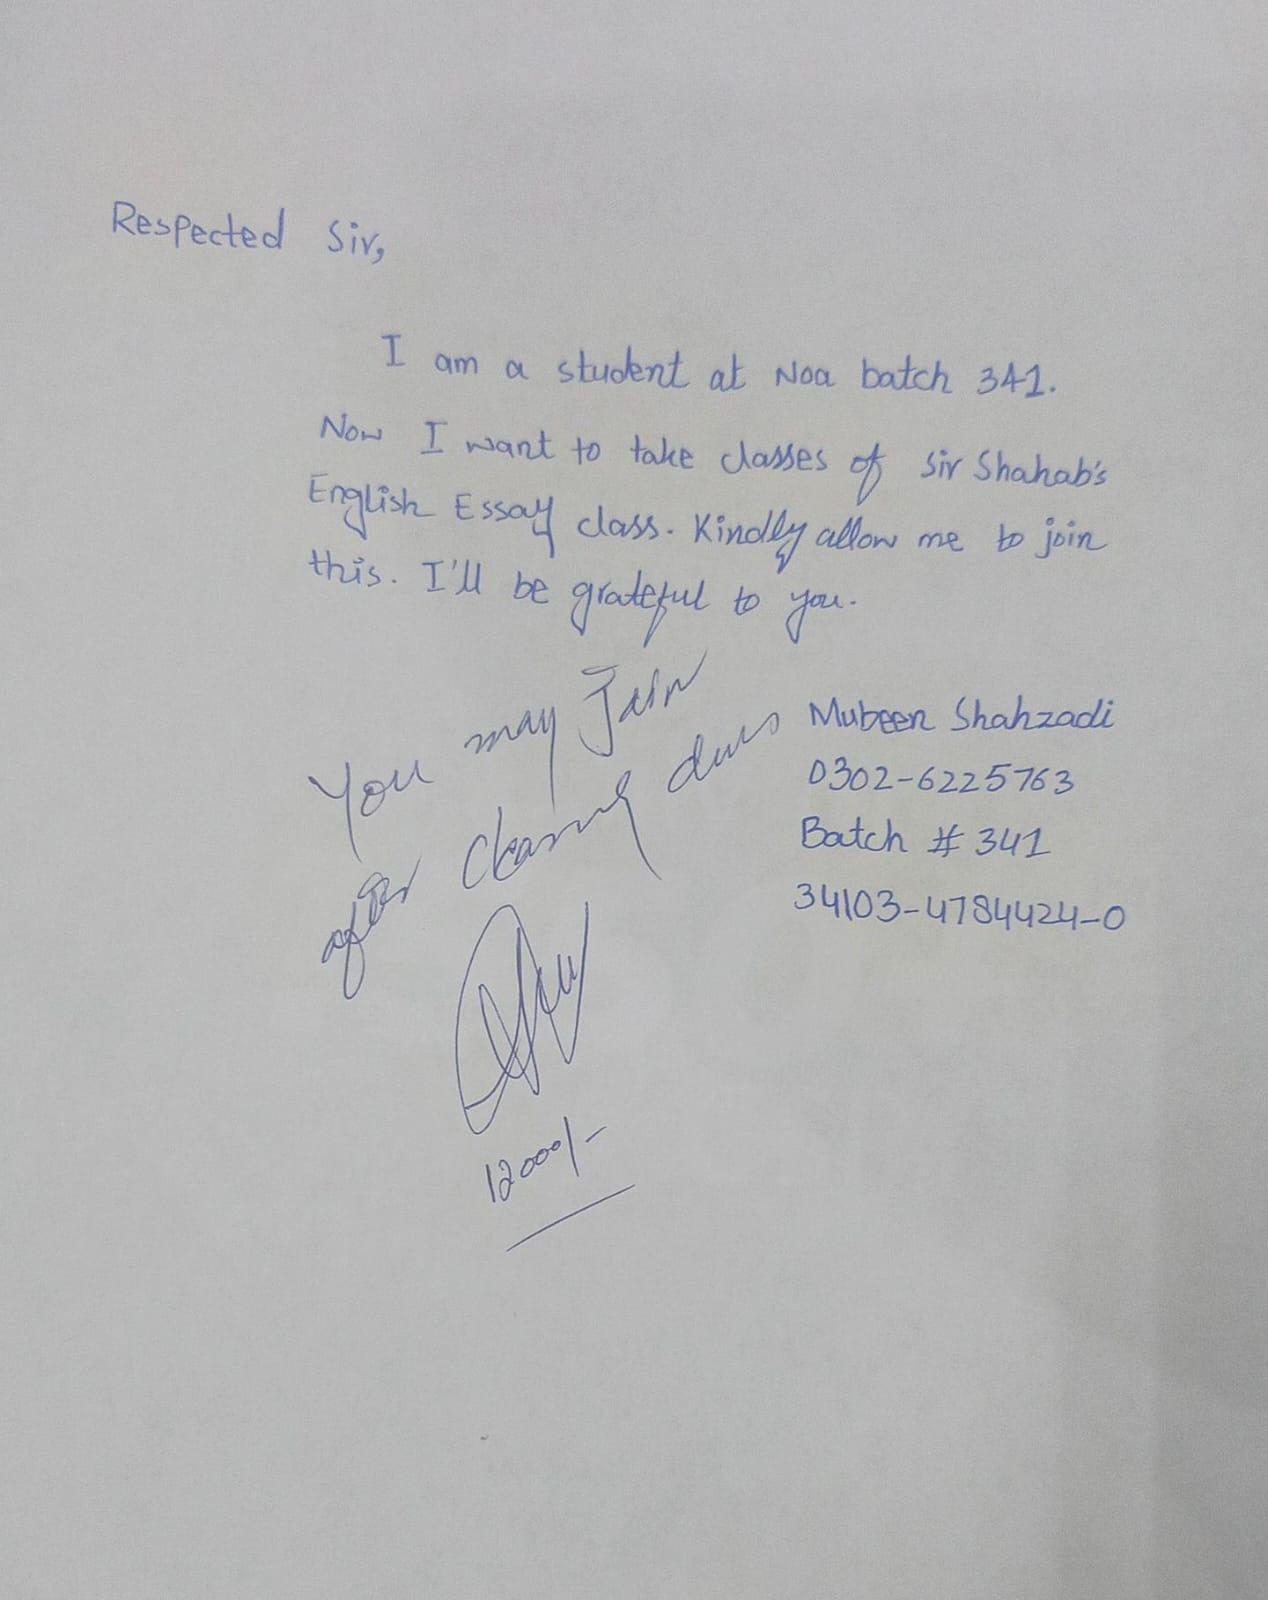 Respected Sir,
I am a student at Noa batch 341.
Now I want to take classes of Sir Shahab's
English Essay class. Kindly allow me to join
this. I'll be grateful to you.
You may Join
after clearing dues
Mubeen Shahzadi
0302-6225763
Batch # 341
34103-4784424-0
12000/-